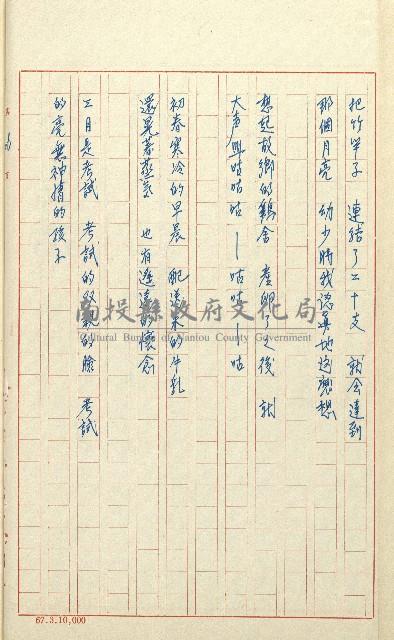 把竹竿子 連結了二十支 就会達到
那個月亮 幼少時我認真地这麽想
想起故鄉的鷄舍 產卵了之後 就
大声叫咕咕咕—咕咕—咕
初春寒冷的早晨 配送来的牛乳
還是蒸蒸 也有遙遠的懷念
三月是考試 考試的 臉 考試
的亮 無神情的孩子
南投縣政府文化局
Cultural Bureau of Nantou County Government
67.3.10,000